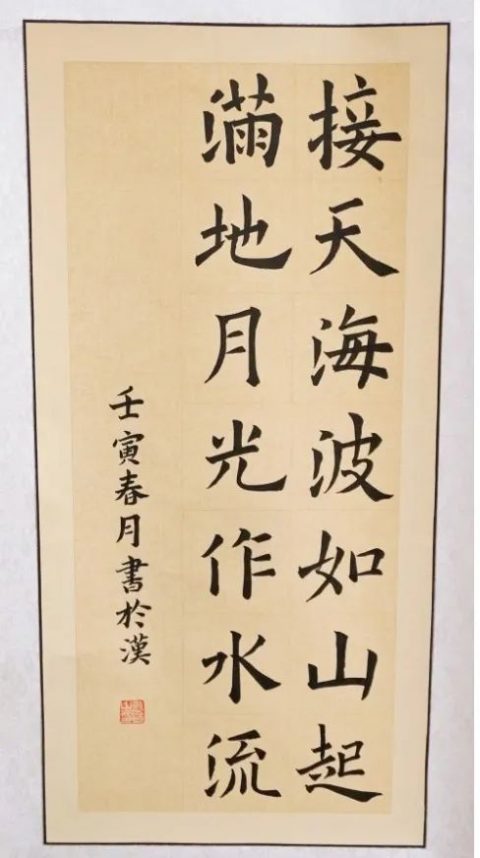 接天海波如山起
滿地月光作水流
壬寅春月書於漢